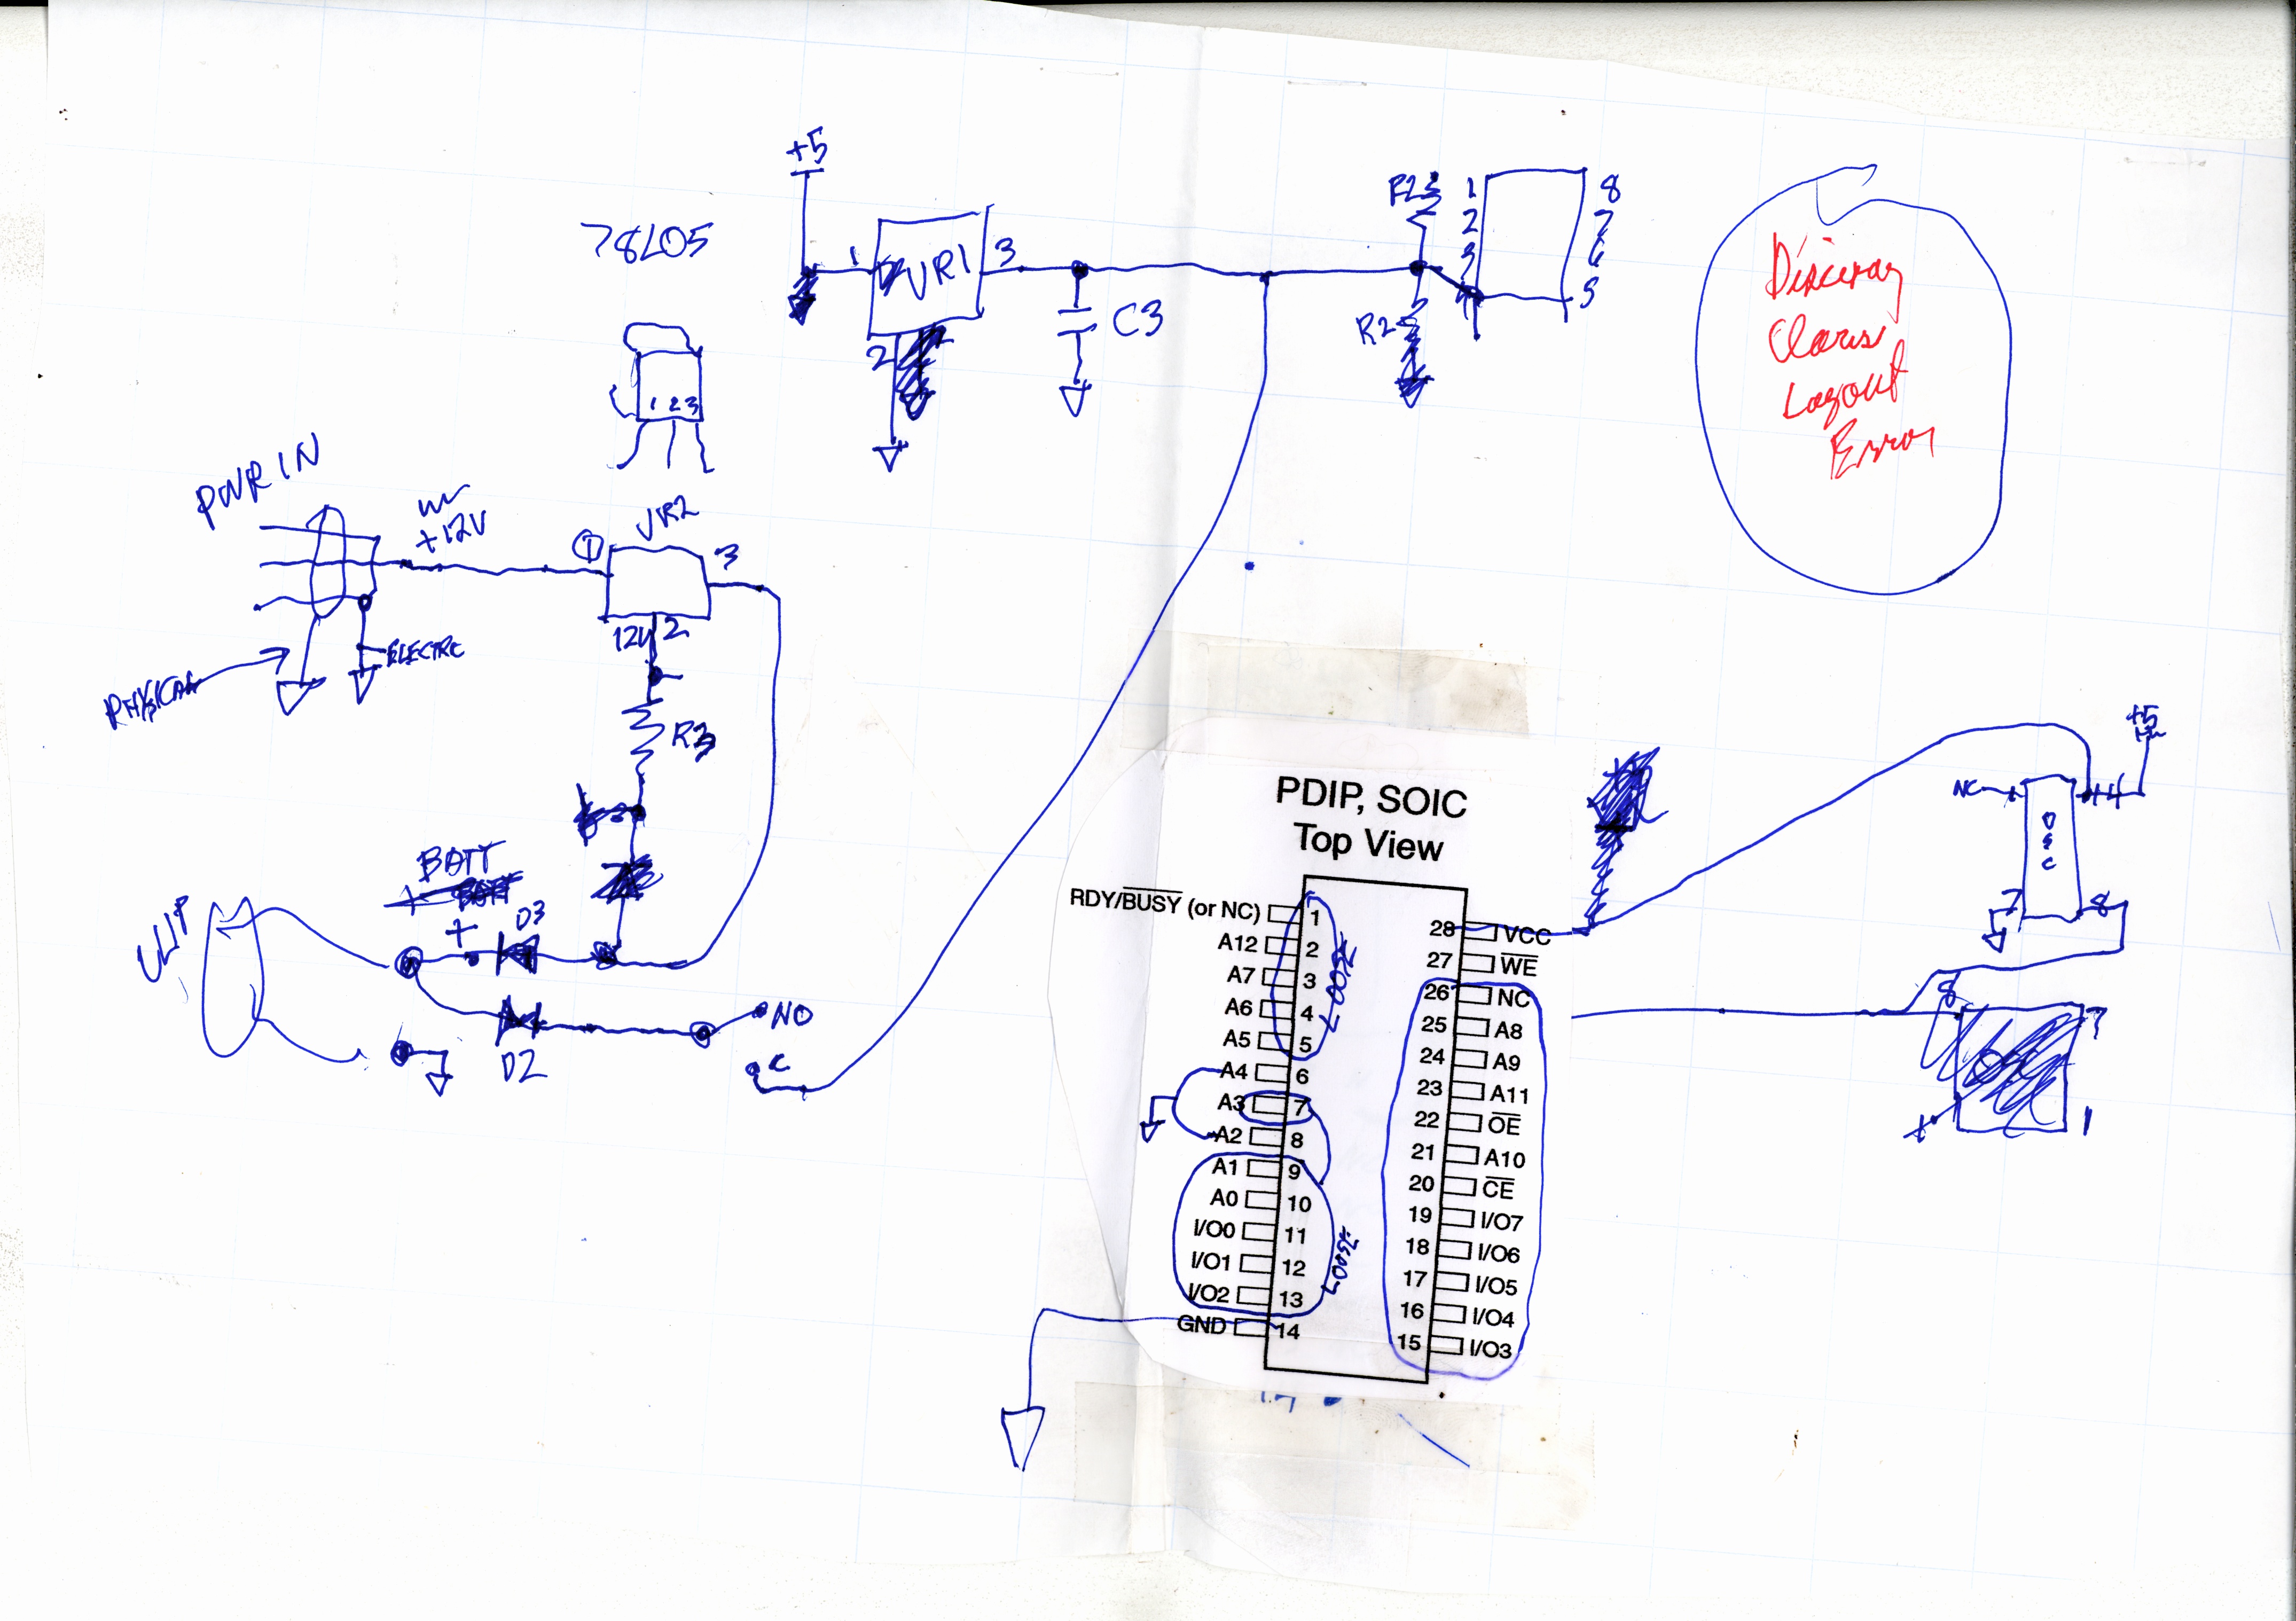 +5
78L05
1
VR1
3
2
C3
R2
1
2
3
8
7
6
5
Layout
Error
1 2 3
PWR IN
+12V
1
VR2
3
12V
2
ELECTRC
PHYSICAL
R3
BATT
+
D3
CLIP
D2
NO
C
PDIP, SOIC
Top View
RDY/BUSY (or NC)
1
A12
2
A7
3
A6
4
A5
5
A4
6
A3
7
A2
8
A1
9
A0
10
I/O0
11
I/O1
12
I/O2
13
GND
14
LOOSE
LOOSE
28
VCC
27
WE
26
NC
25
A8
24
A9
23
A11
22
OE
21
A10
20
CE
19
I/O7
18
I/O6
17
I/O5
16
I/O4
15
I/O3
+5
NC
1
14
OSC
7
8
8
7
1